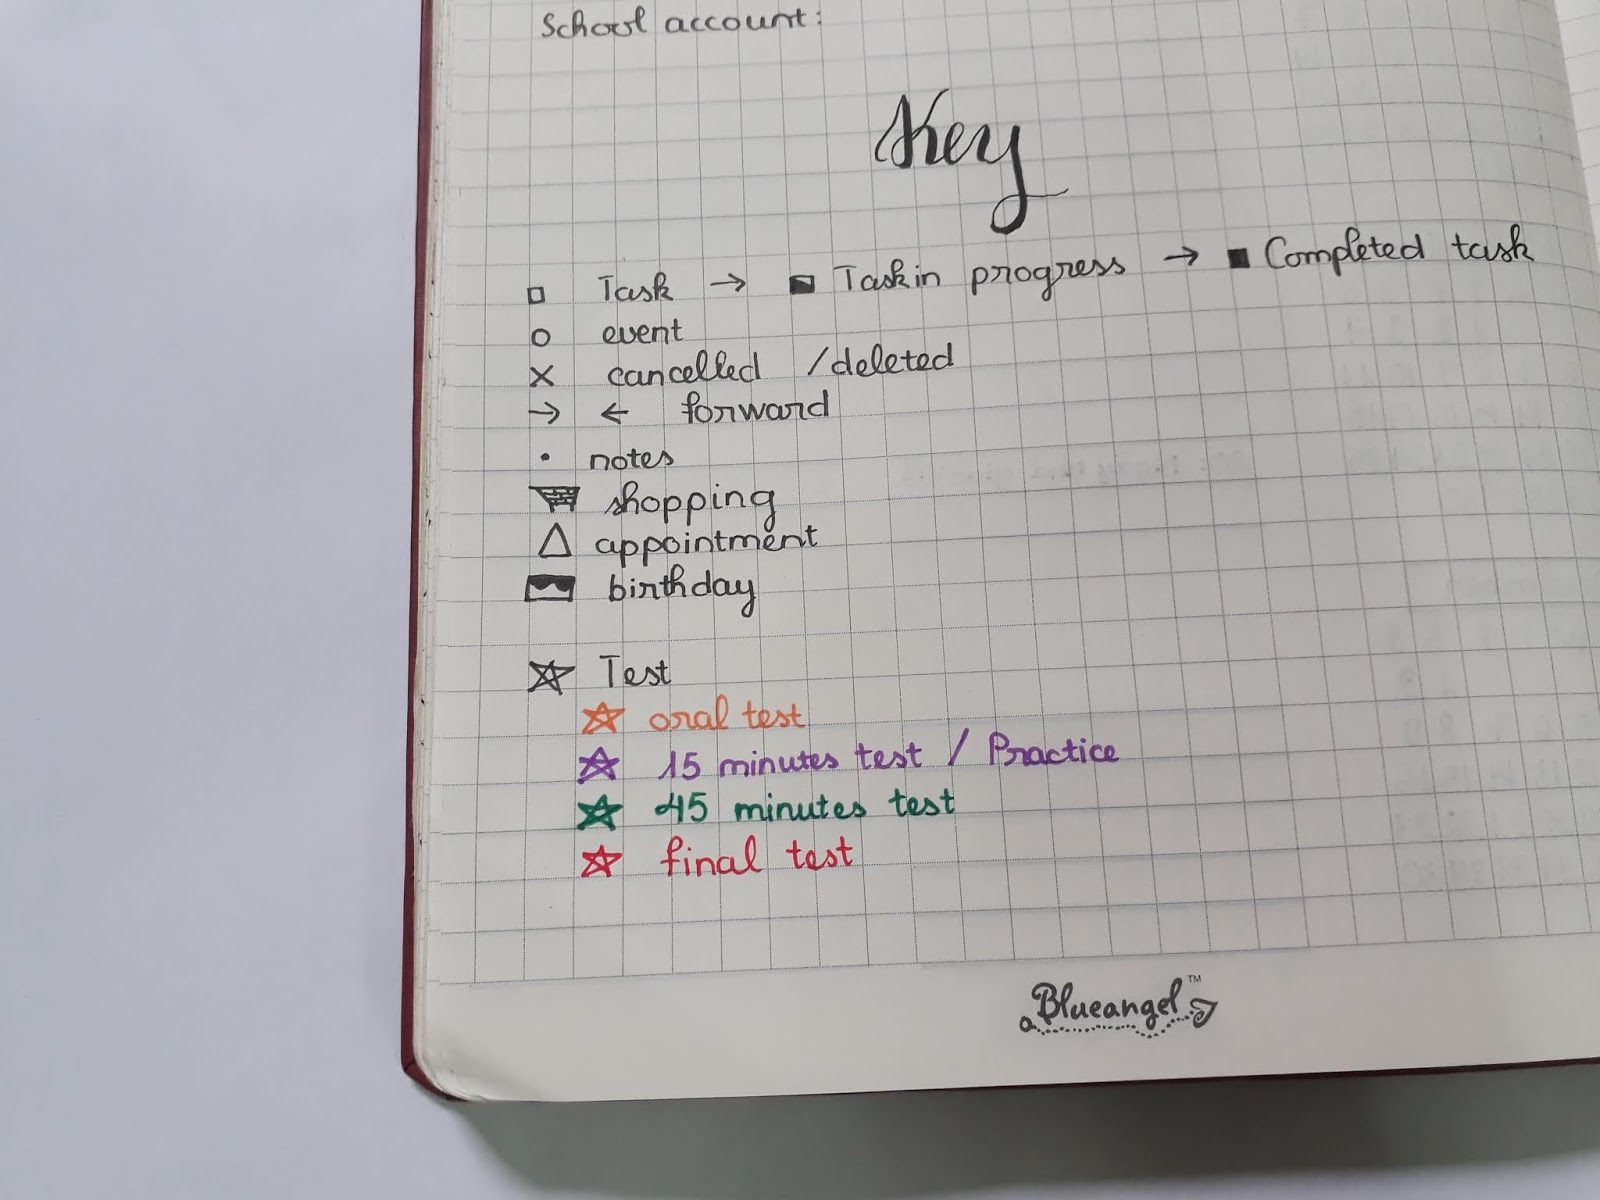 School account:
Key
□ Task → ◪ Task in progress → ■ Completed task
○ event
× cancelled / deleted
→ ← forward
• notes
shopping
△ appointment
birthday
☆ Test
☆ oral test
☆ 15 minutes test / Practice
☆ 45 minutes test
☆ final test
Blueangel™